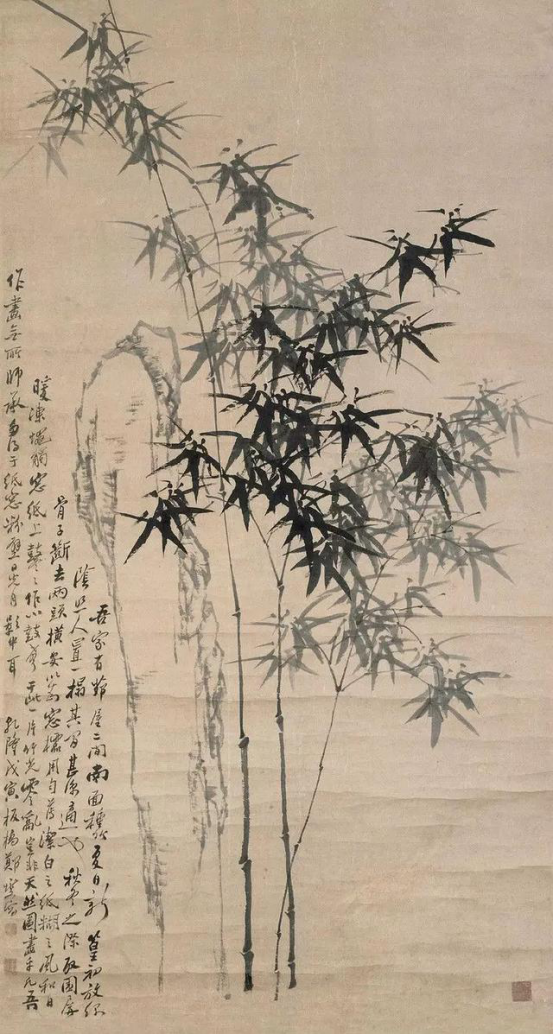 吾家有茆屋二間南面種竹夏日新篁初放綠
陰照人置一榻其間甚涼適也秋冬之際取圍屏
骨子斷去兩頭橫安以為窗櫺用勻薄潔白之紙糊之風和日
暖凍蠅觸窗紙上鼕々作小鼓聲于此一片竹光零亂豈非天然圖畫乎凡吾
作畫無所師承多得于紙窗粉壁日光月影中耳 乾隆戊寅板橋鄭燮